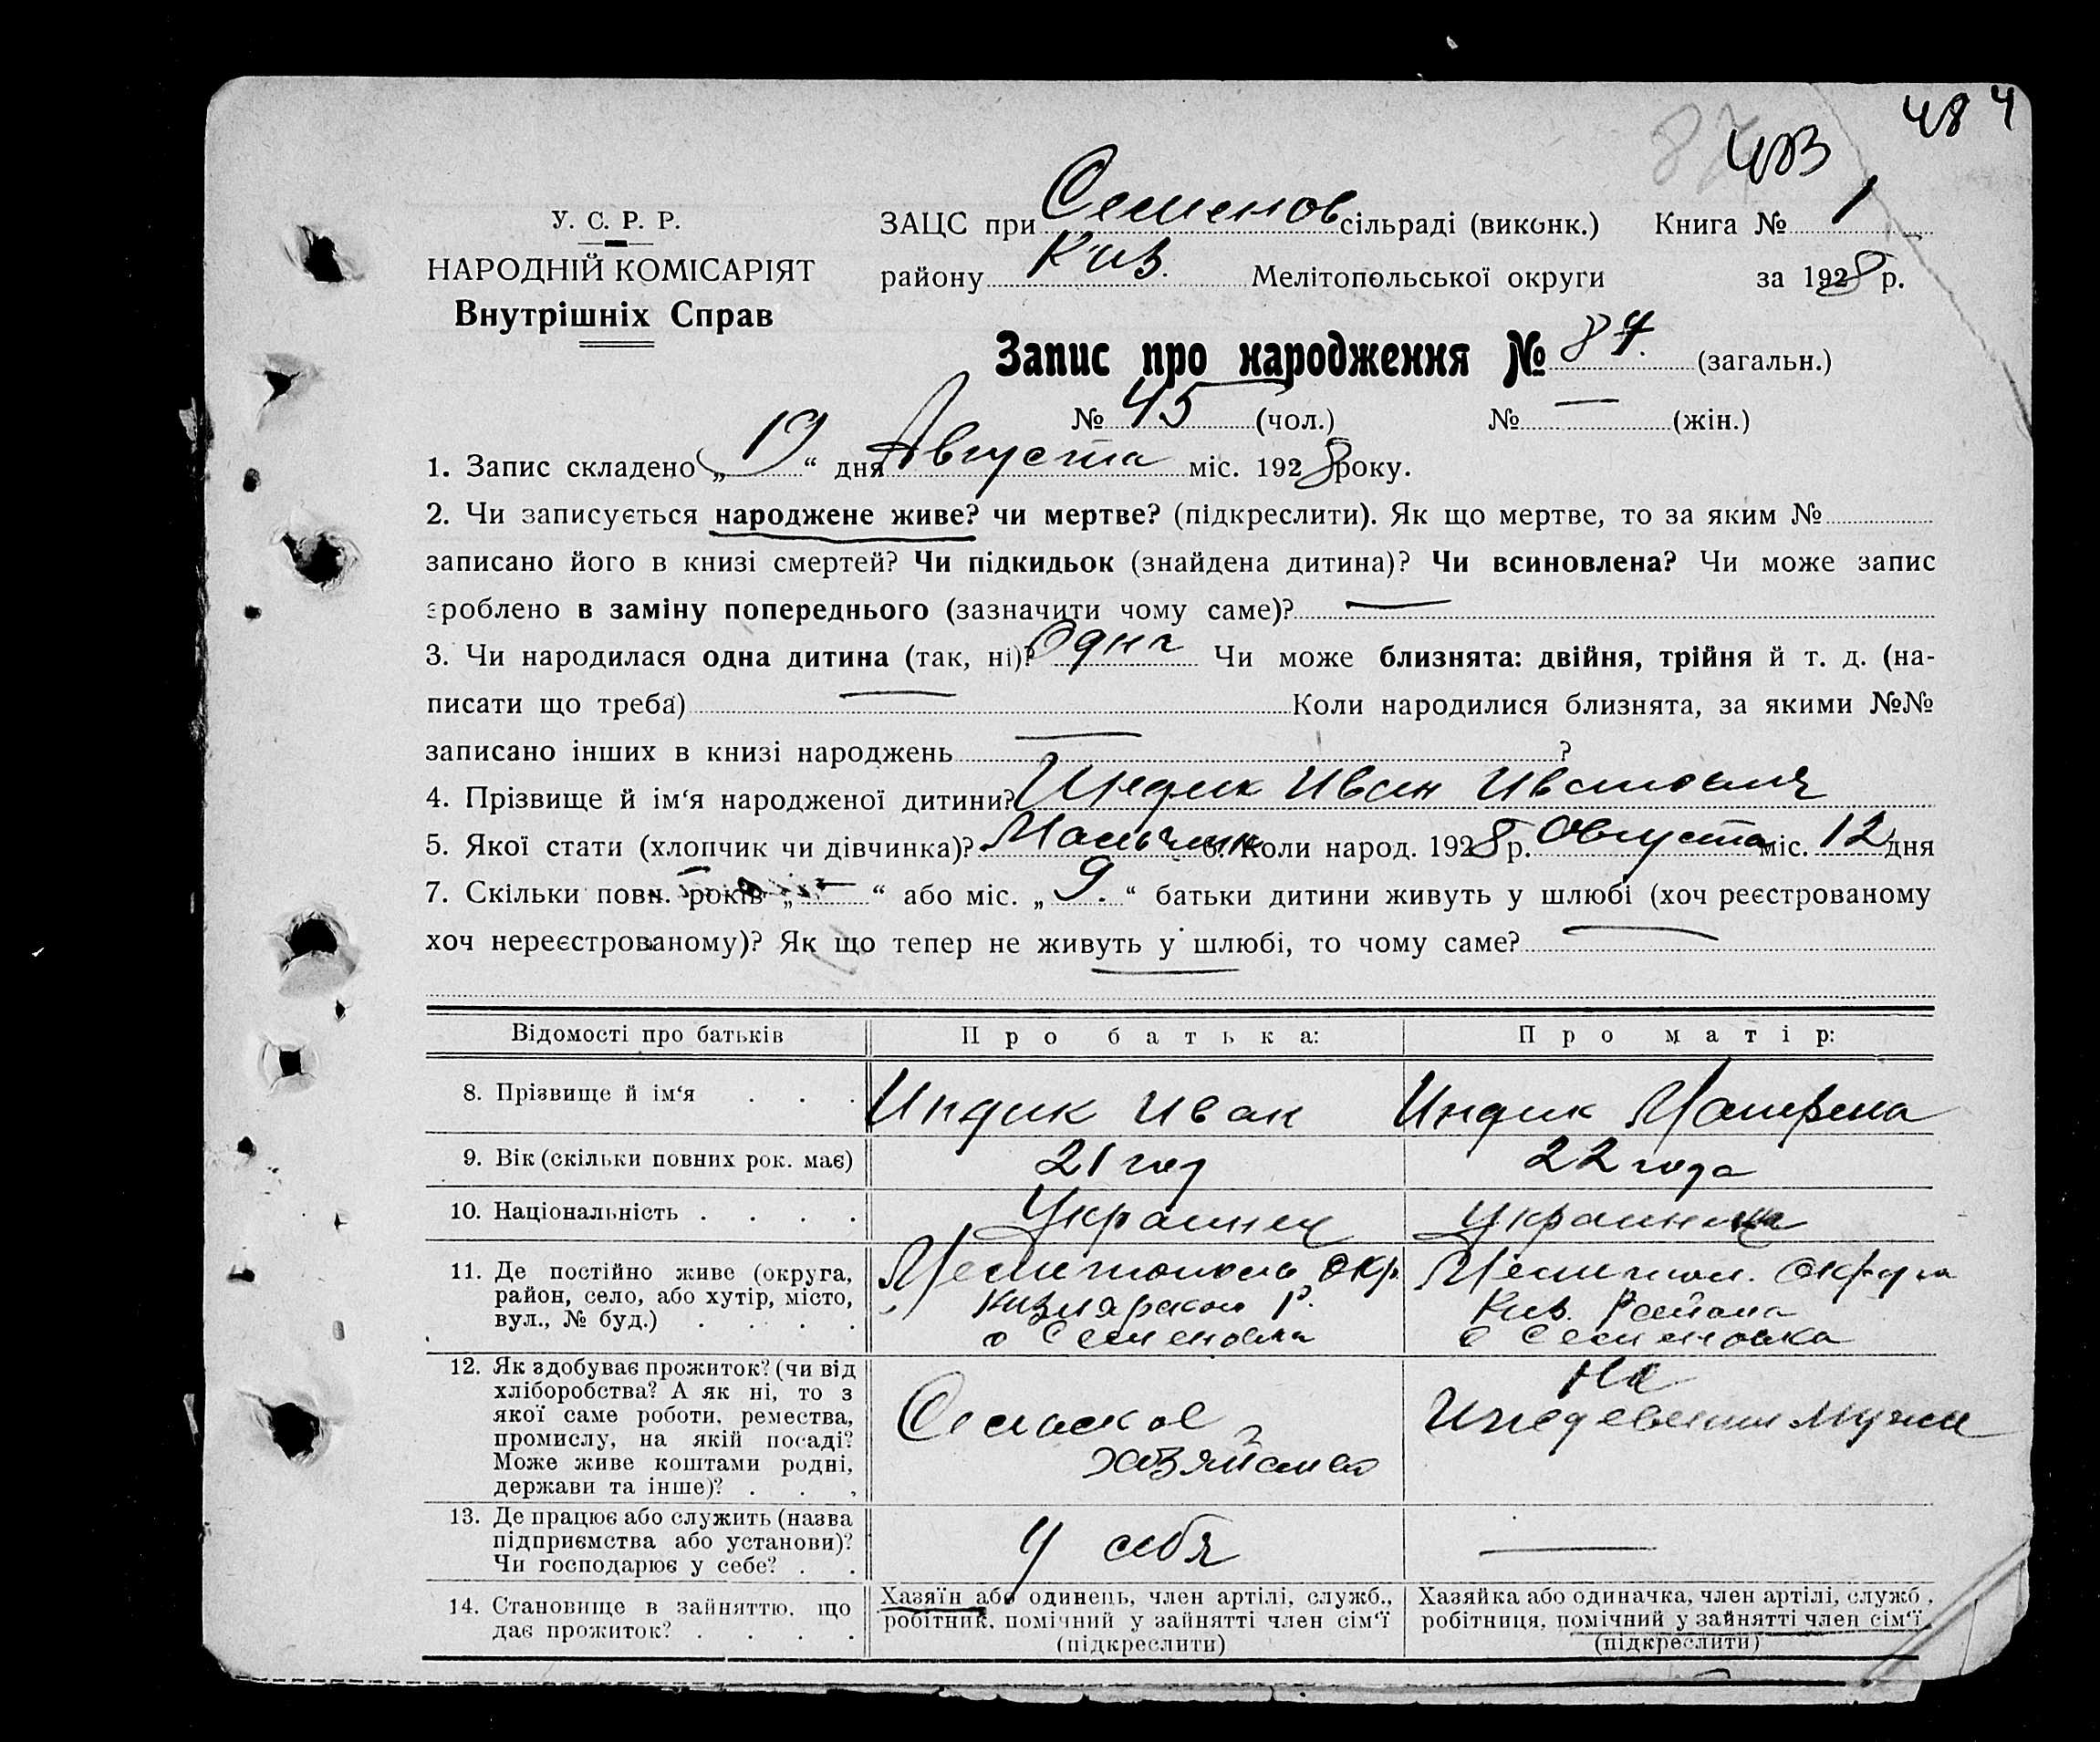 48 4
87 483
У. С. Р. Р.
НАРОДНІЙ КОМІСАРІЯТ
Внутрішніх Справ
ЗАЦС при Семенов сільраді (виконк.) Книга № 1
району Киз. Мелітопольської округи за 1928 р.
Запис про народження № 87. (загальн.)
№ 45 (чол.) № — (жін.)
1. Запис складено „ “ дня Августа міс. 1928 року.
2. Чи записується народжене живе? чи мертве? (підкреслити). Як що мертве, то за яким №
записано його в книзі смертей? Чи підкидьок (знайдена дитина)? Чи всиновлена? Чи може запис
зроблено в заміну попереднього (зазначити чому саме)? —
3. Чи народилася одна дитина (так, ні)? Чи може близнята: двійня, трійня й т. д. (на-
писати що треба) — Коли народилися близнята, за якими №№
записано інших в книзі народжень — ?
4. Прізвище й ім‘я народженої дитини? Индик Иван Иванович
5. Якої стати (хлопчик чи дівчинка)? Мальчик 6. Коли народ. 1928 р. Августа міс. 12 дня
7. Скільки повн. років „ “ або міс. „ 9. “ батьки дитини живуть у шлюбі (хоч реєстрованому
хоч нереєстрованому)? Як що тепер не живуть у шлюбі, то чому саме? —
Відомості про батьків Про батька: Про матір:
8. Прізвище й ім‘я . . . Индик Иван Индик Матрена
9. Вік (скільки повних рок. має) 21 год 22 года
10. Національність . . . . Украинец Украинка
11. Де постійно живе (округа,
район, село, або хутір, місто,
вул., № буд.) . . . .
Мелитополь окр.
Кизиярского р.
с Семеновка
Мелитоп. округа
Киз. Района
с Семеновка
12. Як здобуває прожиток? (чи від
хліборобства? А як ні, то з
якої саме роботи, ремества,
промислу, на якій посаді?
Може живе коштами родні,
держави та інше)? . . .
Сельское
хозяйство
На
Иждевении мужа
13. Де працює або служить (назва
підприємства або установи)?
Чи господарює у себе? . .
У себя
—
14. Становище в зайняттю, що
дає прожиток? . . . .
Хазяїн або одинець, член артілі, служб.,
робітник, помічний у зайнятті член сім‘ї
(підкреслити)
Хазяйка або одиначка, член артілі, служб.,
робітниця, помічний у зайнятті член сім‘ї
(підкреслити)